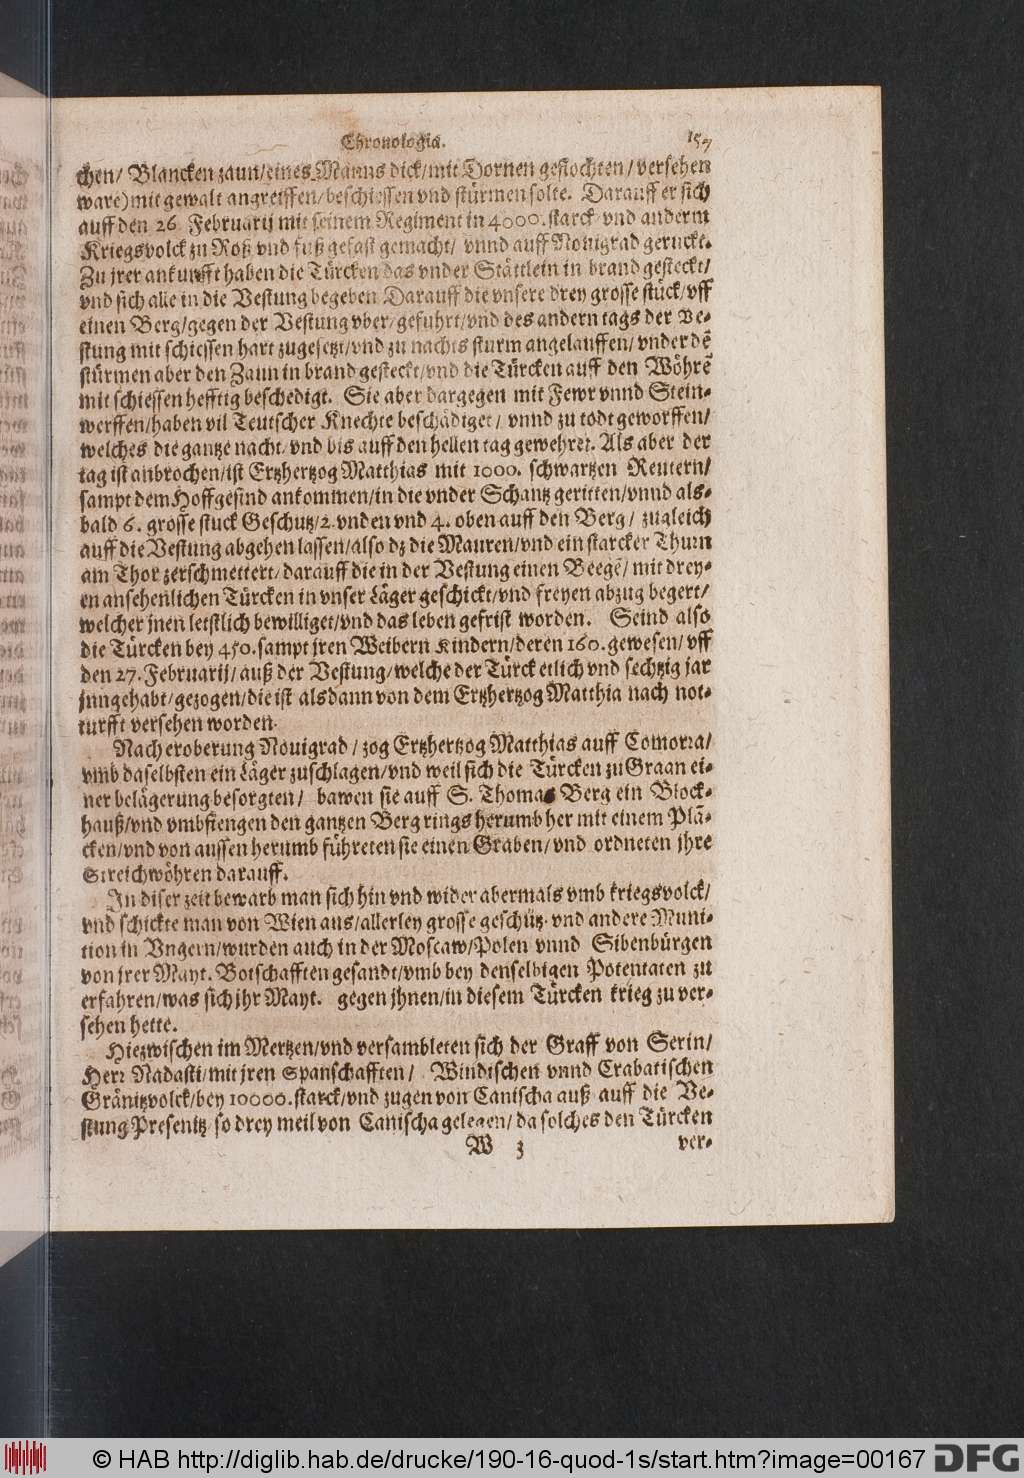 Chronologia. 157
chen/ Blancken zaun/eines Manns dick/mit Dornen geflochten/ versehen
ware) mit gewalt angreiffen/beschiessen vnd stürmen solte. Darauff er sich
auff den 26 Februarij mit seinem Regiment in 4000. starck vnd anderm
Kriegsvolck zu Roß vnd fuß gefast gemacht/ vnnd auff Nouigrad geruckt.
Zu jrer ankunfft haben die Türcken das vnder Stättlein in brand gesteckt/
vnd sich alle in die Vestung begeben Darauff die vnsere drey grosse stück/vff
einen Berg/gegen der Vestung vber/gefuhrt/vnd des andern tags der ve-
stung mit schiessen hart zugesetzt/vnd zu nachts sturm angelauffen/vnder dē
stürmen aber den Zaun in brand gesteckt/vnd die Türcken auff den Wöhrē
mit schiessen hefftig beschedigt. Sie aber dargegen mit Fewr vnnd Stein-
werffen/haben vil Teutscher Knechte beschädiget/ vnnd zu todt geworffen/
welches die gantze nacht/vnd bis auff den hellen tag gewehret. Als aber der
tag ist anbrochen/ist Ertzhertzog Matthias mit 1000. schwartzen Reutern/
sampt dem Hoffgesind ankommen/in die vnder Schantz geritten/vnnd als-
bald 6. grosse stuck Geschutz/2 vnden vnd 4. oben auff den Berg/ zugleich
auff die Vestung abgehen lassen/also dz die Mauren/vnd ein starcker Thurn
am Thor zerschmettert/darauff die in der Vestung einen Beegē/mit drey-
en ansehenlichen Türcken in vnser Läger geschickt/vnd freyen abzug begert/
welcher jnen letstlich bewilliget/vnd das leben gefrist worden. Seind also
die Türcken bey 450. sampt jren Weibern Kindern/deren 160. gewesen/vff
den 27. Februarij/auß der Vestung/welche der Türck etlich vnd sechtzig jar
jnngehabt/gezogen/die ist alsdann von dem Ertzhertzog Matthia nach not-
turfft versehen worden.
Nach eroberung Nouigrad/zog Ertzhertzog Matthias auff Comorra/
vmb daselbsten ein Läger zuschlagen/vnd weil sich die Türcken zu Graan ei-
ner belägerung besorgten/ bawen sie auff S. Thomas Berg ein Block-
hauß/vnd vmbfiengen den gantzen Berg rings herumb her mit einem Plā-
cken/vnd von aussen herumb führeten sie einen Graben/vnd ordneten jhre
Streichwöhren darauff.
In diser zeit bewarb man sich hin vnd wider abermals vmb kriegsvolck/
vnd schickte man von Wien aus/allerley grosse geschütz vnd andere Muni-
tion in Vngern/wurden auch in der Moscaw/Polen vnnd Sibenbürgen
von jrer Mayt. Botschafften gesandt/vmb bey denselbigen Potentaten zu
erfahren/was sich jhr Mayt. gegen jhnen/in diesem Türcken krieg zu ver-
sehen hette.
Hiezwischen im Mertzen/vnd versambleten sich der Graff von Serin/
Herr Nadasti/mit jren Spanschafften/ Windischen vnnd Crabatischen
Gränitzvolck/bey 10000. starck/vnd zugen von Canischa auß auff die Ve-
stung Presenitz so drey meil von Canischa gelegen/da solches den Türcken
W 3 ver-
© HAB http://diglib.hab.de/drucke/190-16-quod-1s/start.htm?image=00167
DFG